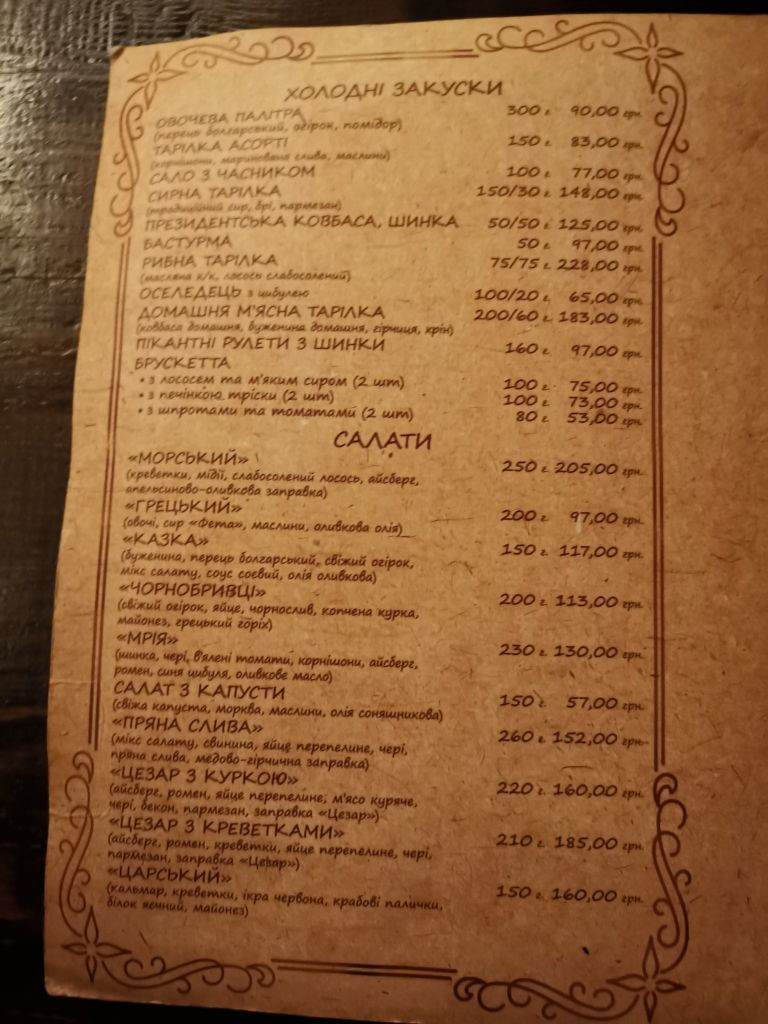 ХОЛОДНІ ЗАКУСКИ
ОВОЧЕВА ПАЛІТРА 300 г. 90,00 грн.
(перець болгарський, огірок, помідор)
ТАРІЛКА АСОРТІ 150 г. 83,00 грн.
(корнішони, маринована слива, маслини)
САЛО З ЧАСНИКОМ 100 г. 77,00 грн.
СИРНА ТАРІЛКА 150/30 г. 148,00 грн.
(традиційний сир, брі, пармезан)
ПРЕЗИДЕНТСЬКА КОВБАСА, ШИНКА 50/50 г. 125,00 грн.
БАСТУРМА 50 г. 97,00 грн.
РИБНА ТАРІЛКА 75/75 г. 228,00 грн.
(масляна х/к, лосось слабосолений)
ОСЕЛЕДЕЦЬ з цибулею 100/20 г. 65,00 грн.
ДОМАШНЯ М'ЯСНА ТАРІЛКА 200/60 г. 183,00 грн.
(ковбаса домашня, буженина домашня, гірчиця, хрін)
ПІКАНТНІ РУЛЕТИ З ШИНКИ 160 г. 97,00 грн.
БРУСКЕТТА
• з лососем та м'яким сиром (2 шт) 100 г. 75,00 грн.
• з печінкою тріски (2 шт) 100 г. 73,00 грн.
• з шпротами та томатами (2 шт) 80 г. 53,00 грн.
САЛАТИ
«МОРСЬКИЙ» 250 г. 205,00 грн.
(креветки, мідії, слабосолений лосось, айсберг,
апельсиново-оливкова заправка)
«ГРЕЦЬКИЙ» 200 г. 97,00 грн.
(овочі, сир «Фета», маслини, оливкова олія)
«КАЗКА» 150 г. 117,00 грн.
(буженина, перець болгарський, свіжий огірок,
мікс салату, соус соєвий, олія оливкова)
«ЧОРНОБРИВЦІ» 200 г. 113,00 грн.
(свіжий огірок, яйце, чорнослив, копчена курка,
майонез, грецький горіх)
«МРІЯ» 230 г. 130,00 грн.
(шинка, чері, в'ялені томати, корнішони, айсберг,
ромен, синя цибуля, оливкове масло)
САЛАТ З КАПУСТИ 150 г. 57,00 грн.
(свіжа капуста, морква, маслини, олія соняшникова)
«ПРЯНА СЛИВА» 260 г. 152,00 грн.
(мікс салату, свинина, яйце перепелине, чері,
пряна слива, медово-гірчична заправка)
«ЦЕЗАР З КУРКОЮ» 220 г. 160,00 грн.
(айсберг, ромен, яйце перепелине, м'ясо куряче,
чері, бекон, пармезан, заправка «Цезар»)
«ЦЕЗАР З КРЕВЕТКАМИ» 210 г. 185,00 грн.
(айсберг, ромен, креветки, яйце перепелине, чері,
пармезан, заправка «Цезар»)
«ЦАРСЬКИЙ» 150 г. 160,00 грн.
(кальмар, креветки, ікра червона, крабові палички,
білок яєчний, майонез)